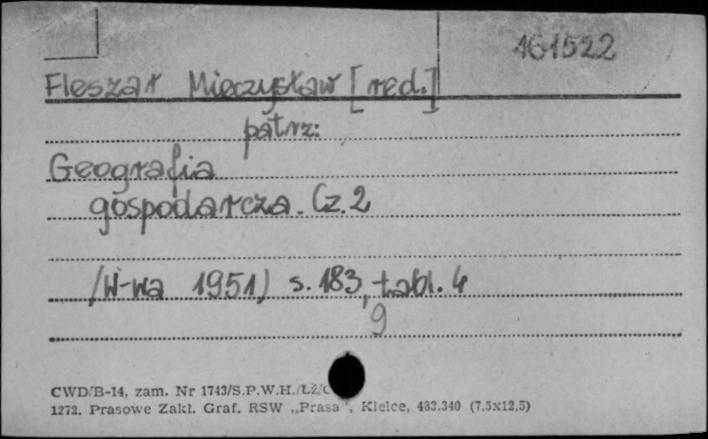 161522
Fleszar Mieczysław [red.]
patrz:
Geografia
gospodarcza. Cz. 2
/W-wa 1951) s. 183, tabl. 4
9
CWD/B-14, zam. Nr 1743/S.P.W.H./
1272. Prasowe Zakł. Graf. RSW „Prasa", Kielce, 433.340 (7,5x12,5)